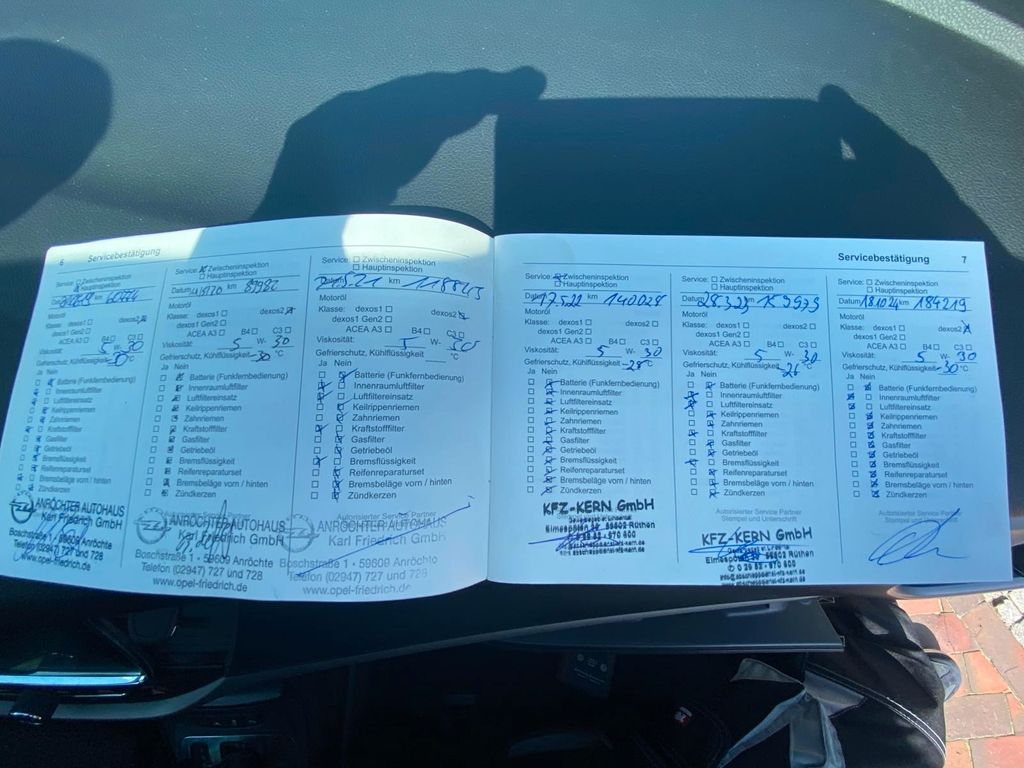 6 Servicebestätigung
Service: Zwischeninspektion
Hauptinspektion
Datum km
Motoröl
Klasse: dexos1 dexos2
dexos1 Gen2
ACEA A3 B4 C3
Viskosität: 5 W- 30
Gefrierschutz, Kühlflüssigkeit °C
Ja Nein
Batterie (Funkfernbedienung)
Innenraumluftfilter
Luftfiltereinsatz
Keilrippenriemen
Zahnriemen
Kraftstofffilter
Gasfilter
Getriebeöl
Bremsflüssigkeit
Reifenreparaturset
Bremsbeläge vorn / hinten
Zündkerzen
ANRÖCHTER AUTOHAUS
Karl Friedrich GmbH
Boschstraße 1 · 59609 Anröchte
Telefon (02947) 727 und 728
www.opel-friedrich.de
Service: Zwischeninspektion
Hauptinspektion
Datum km 89982
Motoröl
Klasse: dexos1 dexos2
dexos1 Gen2
ACEA A3 B4 C3
Viskosität: 5 W- 30
Gefrierschutz, Kühlflüssigkeit -30 °C
Ja Nein
Batterie (Funkfernbedienung)
Innenraumluftfilter
Luftfiltereinsatz
Keilrippenriemen
Zahnriemen
Kraftstofffilter
Gasfilter
Getriebeöl
Bremsflüssigkeit
Reifenreparaturset
Bremsbeläge vorn / hinten
Zündkerzen
ANRÖCHTER AUTOHAUS
Karl Friedrich GmbH
Boschstraße 1 · 59609 Anröchte
Telefon (02947) 727 und 728
www.opel-friedrich.de
Service: Zwischeninspektion
Hauptinspektion
Datum km
Motoröl
Klasse: dexos1 dexos2
dexos1 Gen2
ACEA A3 B4 C3
Viskosität: 5 W-
Gefrierschutz, Kühlflüssigkeit °C
Ja Nein
Batterie (Funkfernbedienung)
Innenraumluftfilter
Luftfiltereinsatz
Keilrippenriemen
Zahnriemen
Kraftstofffilter
Gasfilter
Getriebeöl
Bremsflüssigkeit
Reifenreparaturset
Bremsbeläge vorn / hinten
Zündkerzen
Autorisierter Service Partner
ANRÖCHTER AUTOHAUS
Karl Friedrich GmbH
Boschstraße 1 · 59609 Anröchte
Telefon (02947) 727 und 728
www.opel-friedrich.de
Servicebestätigung 7
Service: Zwischeninspektion
Hauptinspektion
Datum 17.5.22 km 140028
Motoröl
Klasse: dexos1 dexos2
dexos1 Gen2
ACEA A3 B4 C3
Viskosität: 5 W- 30
Gefrierschutz, Kühlflüssigkeit -28 °C
Ja Nein
Batterie (Funkfernbedienung)
Innenraumluftfilter
Luftfiltereinsatz
Keilrippenriemen
Zahnriemen
Kraftstofffilter
Gasfilter
Getriebeöl
Bremsflüssigkeit
Reifenreparaturset
Bremsbeläge vorn / hinten
Zündkerzen
KFZ-KERN GmbH
59602 Rüthen
Service: Zwischeninspektion
Hauptinspektion
Datum
Motoröl
Klasse: dexos1 dexos2
dexos1 Gen2
ACEA A3 B4 C3
Viskosität: 5 W- 30
Gefrierschutz, Kühlflüssigkeit -26 °C
Ja Nein
Batterie (Funkfernbedienung)
Innenraumluftfilter
Luftfiltereinsatz
Keilrippenriemen
Zahnriemen
Kraftstofffilter
Gasfilter
Getriebeöl
Bremsflüssigkeit
Reifenreparaturset
Bremsbeläge vorn / hinten
Zündkerzen
Autorisierter Service Partner
Stempel und Unterschrift
KFZ-KERN GmbH
59602 Rüthen
Service: Zwischeninspektion
Hauptinspektion
Datum 18.10.24 km 184219
Motoröl
Klasse: dexos1 dexos2
dexos1 Gen2
ACEA A3 B4 C3
Viskosität: 5 W- 30
Gefrierschutz, Kühlflüssigkeit -30 °C
Ja Nein
Batterie (Funkfernbedienung)
Innenraumluftfilter
Luftfiltereinsatz
Keilrippenriemen
Zahnriemen
Kraftstofffilter
Gasfilter
Getriebeöl
Bremsflüssigkeit
Reifenreparaturset
Bremsbeläge vorn / hinten
Zündkerzen
Autorisierter Service Partner
Stempel und Unterschrift